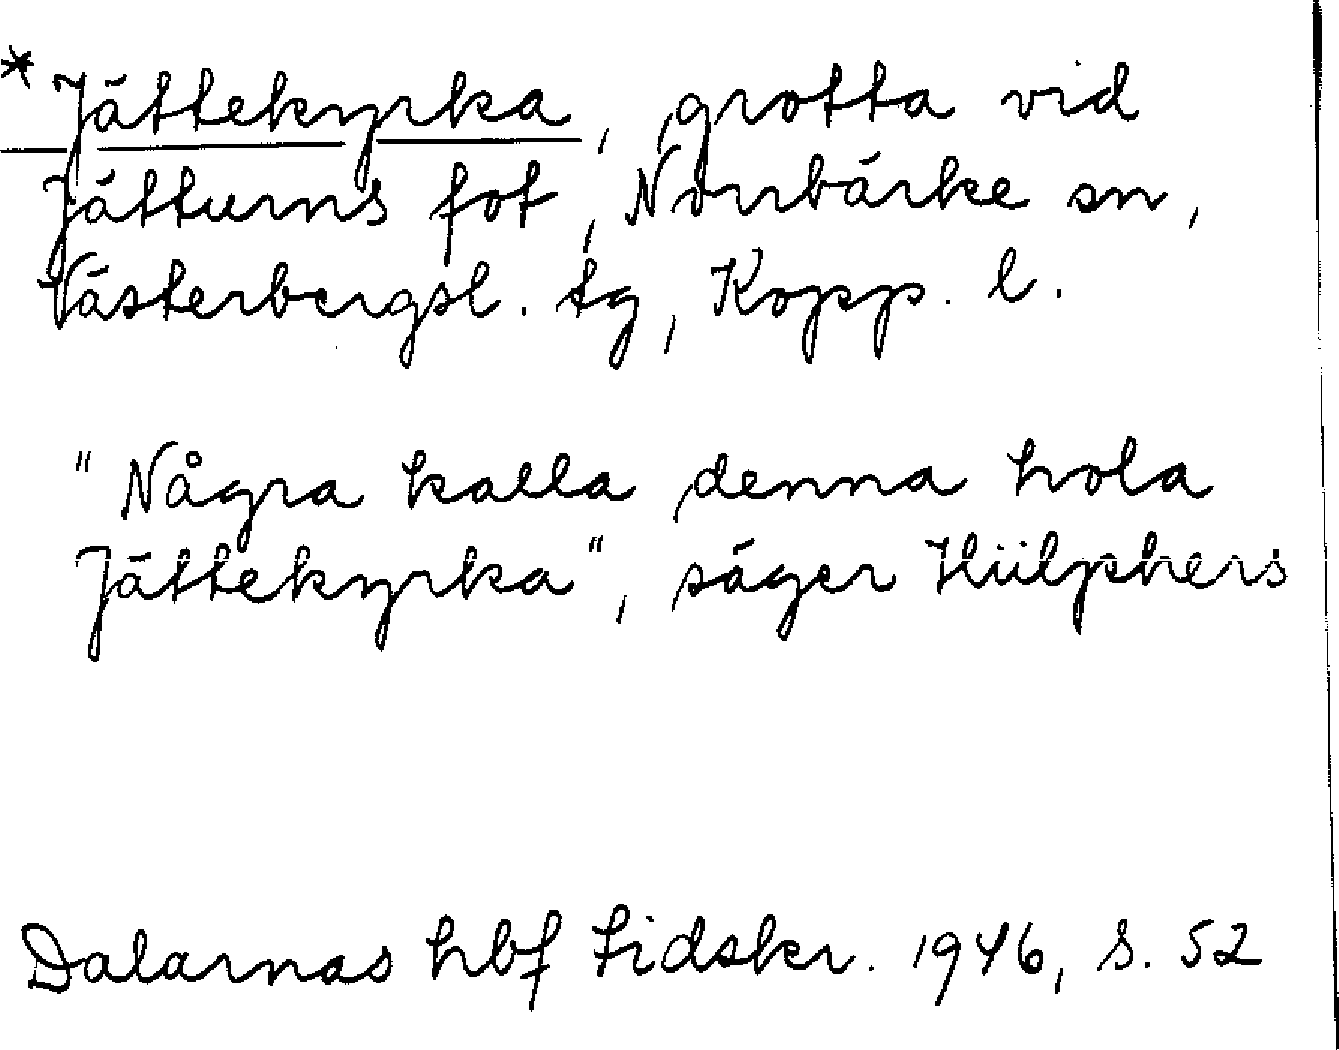 * Jättekyrka, grotta vid
Jätturns fot, Norrbärke sn,
Västerbergsl. tg, Kopp. l.
"Några kalla denna hola
Jättekyrka", säger Hülphers
Dalarnas hbf tidskr. 1946, s. 52